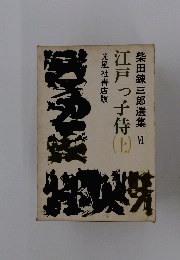 柴田錬三郎選集 VI
江戸っ子侍(上)
光風社書店版